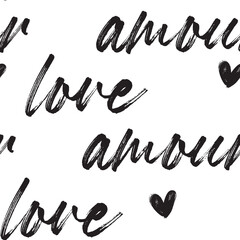 r amou
love
r amour
love